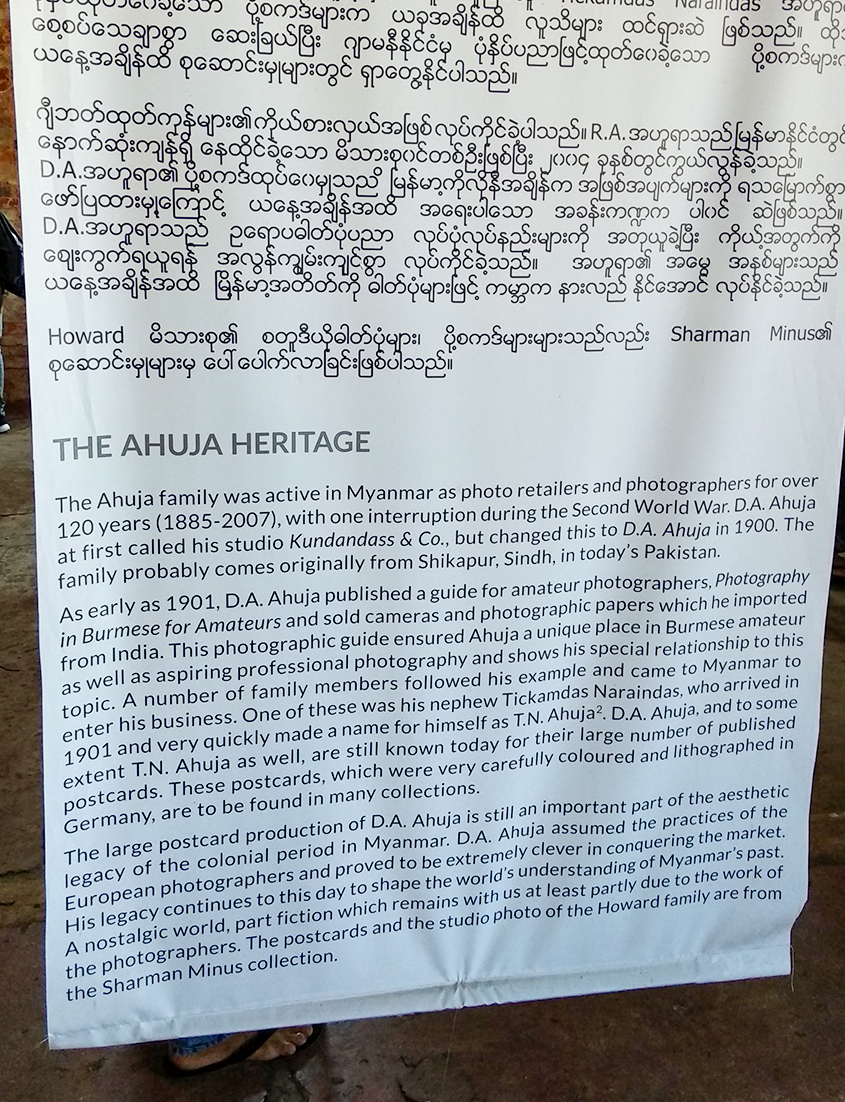 စေ့စပ်သေချာစွာ ဆေးခြယ်ပြီး ဂျာမနီနိုင်ငံမှ ပုံနှိပ်ပညာဖြင့်ထုတ်ဝေခဲ့သော ပို့စကဒ်များ
ယနေ့အချိန်ထိ စုဆောင်းမှုများတွင် ရှာတွေ့နိုင်ပါသည်။
ဂျီဘတ်ထုတ်ကုန်များ၏ကိုယ်စားလှယ်အဖြစ် လုပ်ကိုင်ခဲ့ပါသည်။ R.A. အဟူရာသည်မြန်မာနိုင်ငံတွင်
နောက်ဆုံးကျန်ရှိ နေထိုင်ခဲ့သော မိသားစုဝင်တစ်ဦးဖြစ်ပြီး ၂၀၀၄ ခုနှစ်တွင်ကွယ်လွန်ခဲ့သည်။
D.A.အဟူရာ၏ ပို့စကဒ်ထုပ်ဝေမှုသည် မြန်မာ့ကိုလိုနီအချိန်က အဖြစ်အပျက်များကို ရသမြောက်စွာ
ဖော်ပြထားမှုကြောင့် ယနေ့အချိန်အထိ အရေးပါသော အခန်းကဏ္ဍက ပါဝင် ဆဲဖြစ်သည်။
D.A.အဟူရာသည် ဥရောပဓါတ်ပုံပညာ လုပ်ပုံလုပ်နည်းများကို အတုယူခဲ့ပြီး ကိုယ့်အတွက်ကို
ဈေးကွက်ရယူရန် အလွန်ကျွမ်းကျင်စွာ လုပ်ကိုင်ခဲ့သည်။ အဟူရာ၏ အမွေ အနှစ်များသည်
ယနေ့အချိန်အထိ မြန်မာ့အတိတ်ကို ဓါတ်ပုံများဖြင့် ကမ္ဘာက နားလည် နိုင်အောင် လုပ်နိုင်ခဲ့သည်။
Howard မိသားစု၏ စတူဒီယိုဓါတ်ပုံများ၊ ပို့စကဒ်များများသည်လည်း Sharman Minus၏
စုဆောင်းမှုများမှ ပေါ်ပေါက်လာခြင်းဖြစ်ပါသည်။
THE AHUJA HERITAGE
The Ahuja family was active in Myanmar as photo retailers and photographers for over
120 years (1885-2007), with one interruption during the Second World War. D.A. Ahuja
at first called his studio Kundandass & Co., but changed this to D.A. Ahuja in 1900. The
family probably comes originally from Shikapur, Sindh, in today's Pakistan.
As early as 1901, D.A. Ahuja published a guide for amateur photographers, Photography
in Burmese for Amateurs and sold cameras and photographic papers which he imported
from India. This photographic guide ensured Ahuja a unique place in Burmese amateur
as well as aspiring professional photography and shows his special relationship to this
topic. A number of family members followed his example and came to Myanmar to
enter his business. One of these was his nephew Tickamdas Naraindas, who arrived in
1901 and very quickly made a name for himself as T.N. Ahuja². D.A. Ahuja, and to some
extent T.N. Ahuja as well, are still known today for their large number of published
postcards. These postcards, which were very carefully coloured and lithographed in
Germany, are to be found in many collections.
The large postcard production of D.A. Ahuja is still an important part of the aesthetic
legacy of the colonial period in Myanmar. D.A. Ahuja assumed the practices of the
European photographers and proved to be extremely clever in conquering the market.
His legacy continues to this day to shape the world's understanding of Myanmar's past.
A nostalgic world, part fiction which remains with us at least partly due to the work of
the photographers. The postcards and the studio photo of the Howard family are from
the Sharman Minus collection.